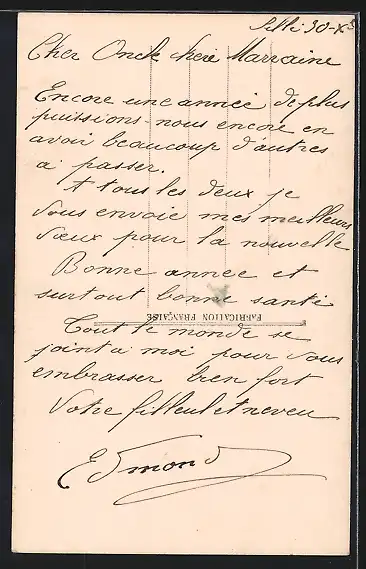 30-X
Cher Oncle chère Marraine
Encore une année de plus
puissions-nous encore en
avoir beaucoup d'autres
a passer.
A tous les deux je
vous envoie mes meilleurs
vœux pour la nouvelle
Bonne année et
surtout bonne santé
FABRICATION FRANÇAISE
Tout le monde se
joint a moi pour vous
embrasser bien fort
Votre filleul et neveu
Edmond